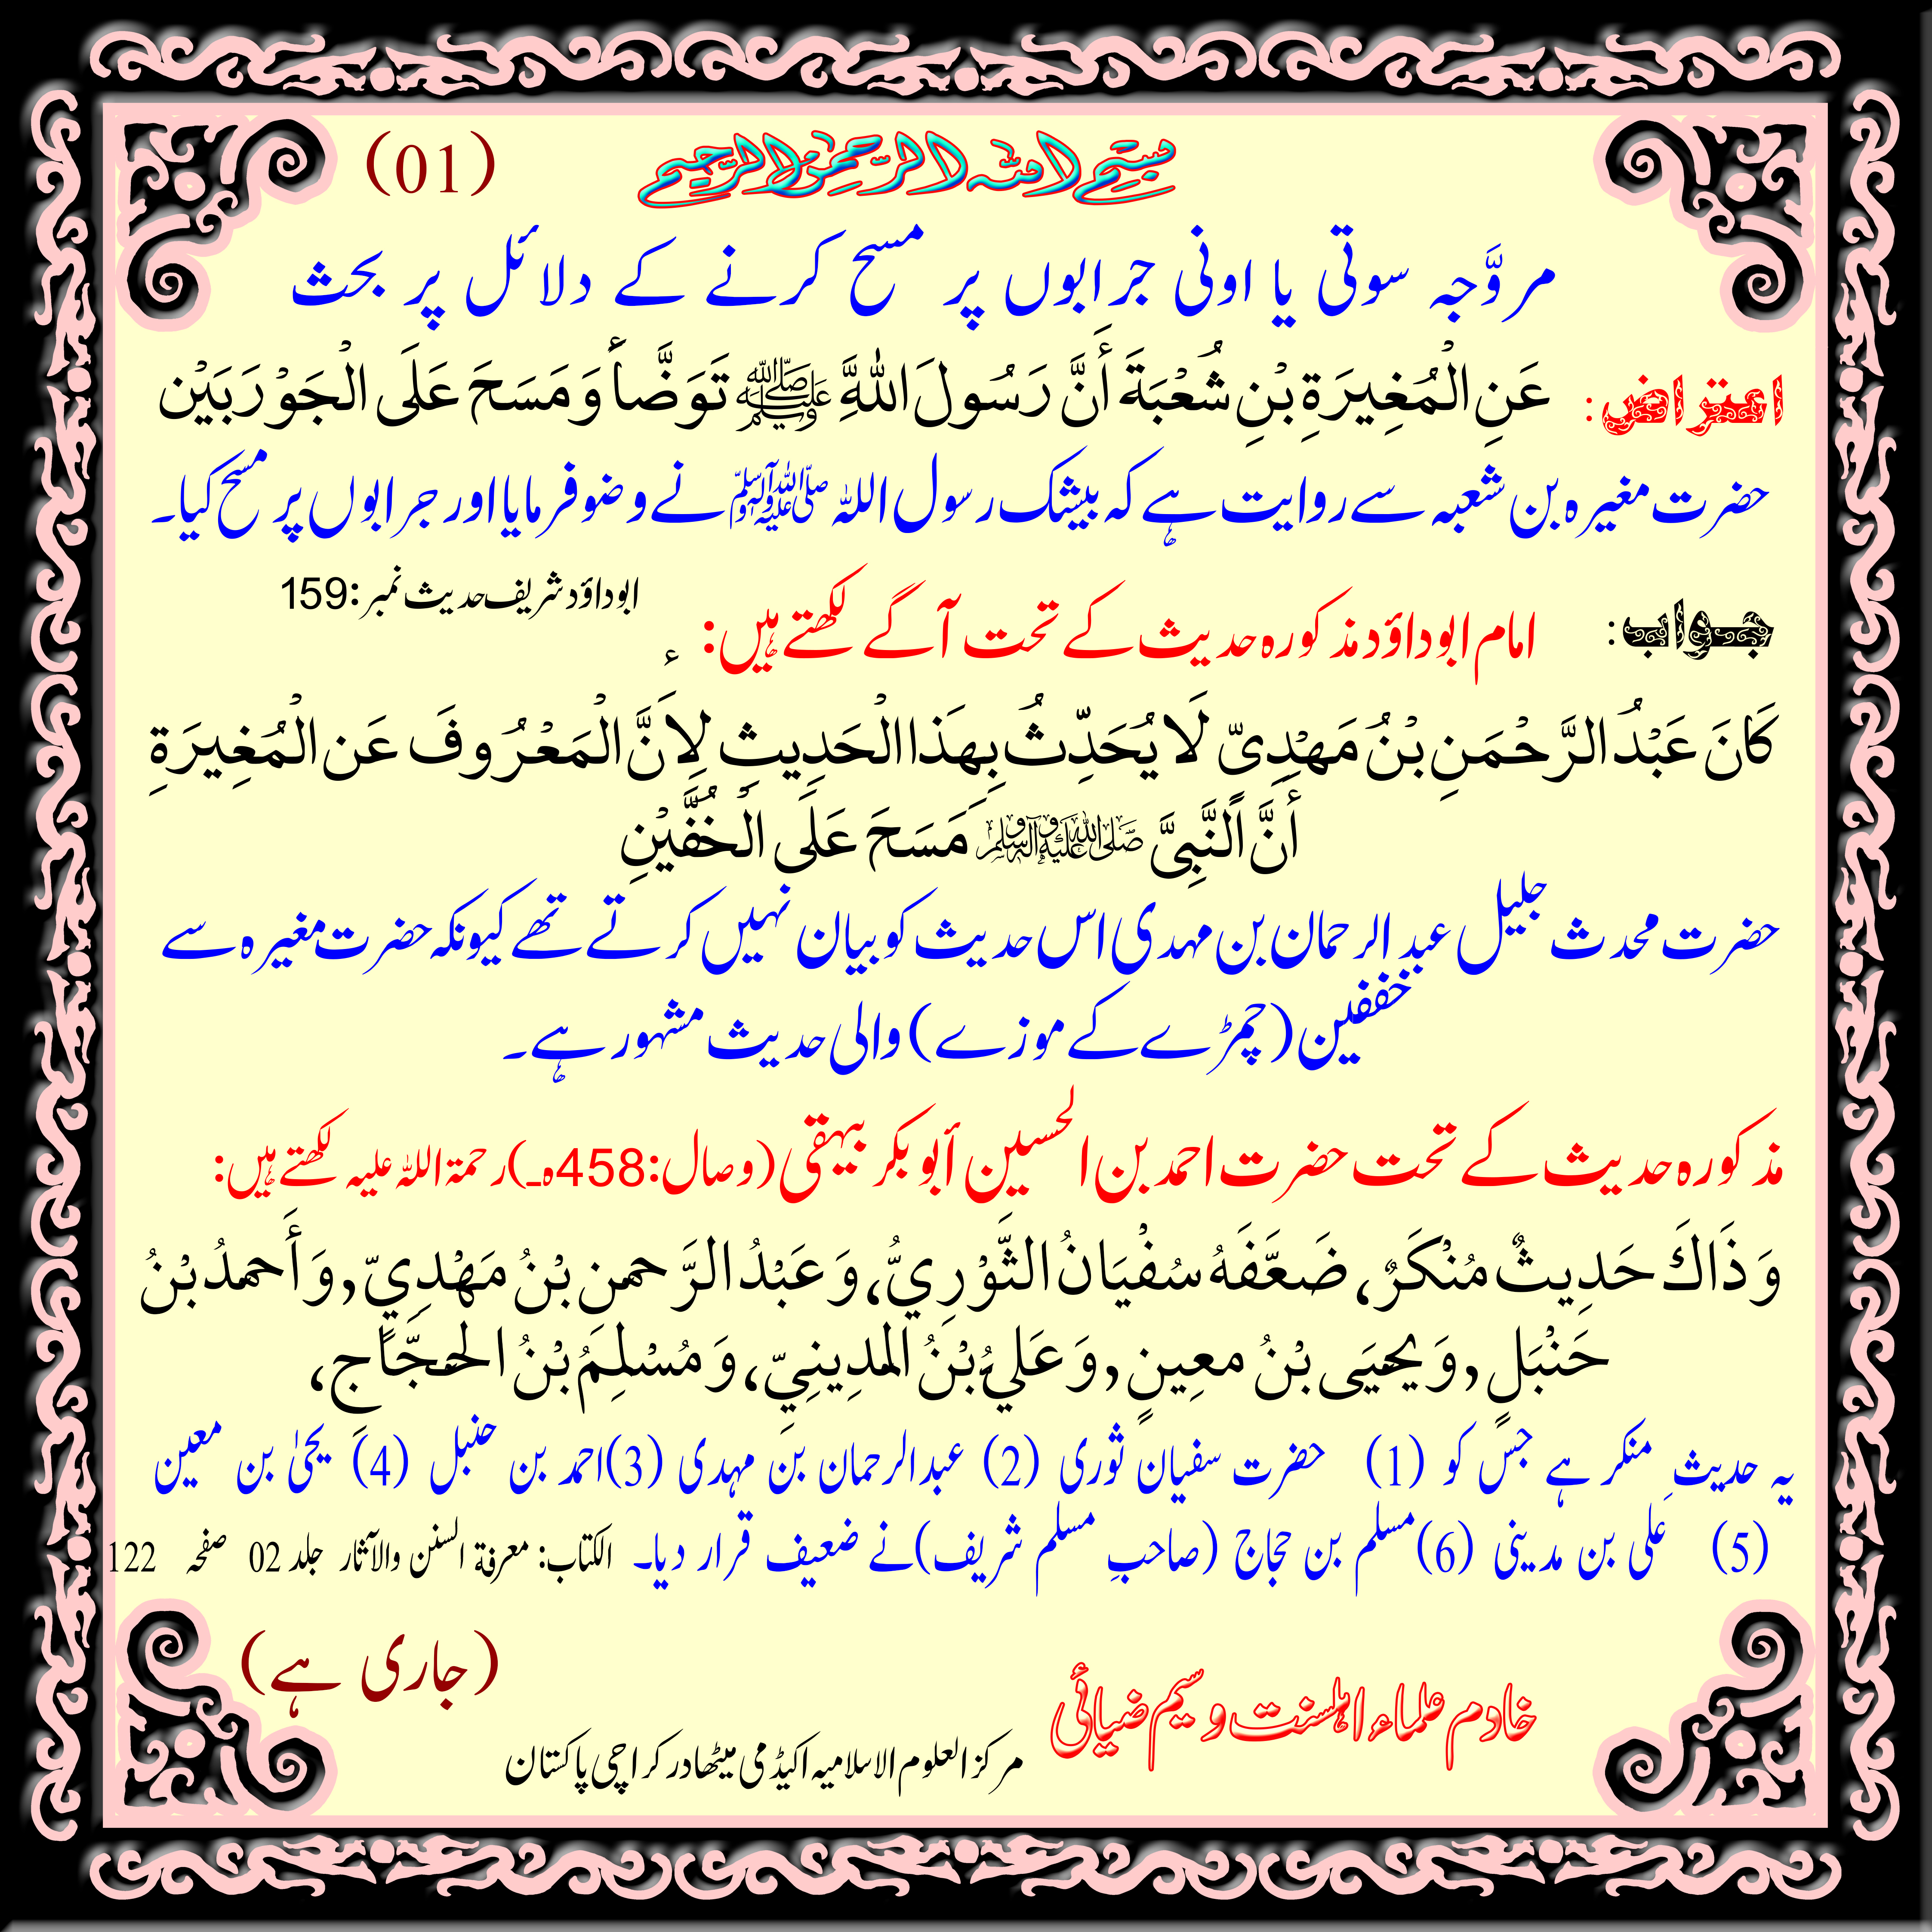 بسم اللہ الرحمن الرحیم (01)
مروَّجہ سوتی یا اونی جرابوں پر مسح کرنے کے دلائل پر بحث
اعتراض: عَنِ الْمُغِيرَةِ بْنِ شُعْبَةَ أَنَّ رَسُولَ اللّٰهِ ﷺ تَوَضَّأَ وَمَسَحَ عَلَى الْجَوْرَبَيْن
حضرت مغیرہ بن شعبہ سے روایت ہے کہ بیشک رسول اللہ ﷺ نے وضو فرمایا اور جرابوں پر مسح کیا۔
ابوداؤد شریف حدیث نمبر:159
جواب: امام ابوداؤد مذکورہ حدیث کے تحت آگے لکھتے ہیں:
كَانَ عَبْدُ الرَّحْمَنِ بْنُ مَهْدِىّ لَا يُحَدِّثُ بِهَذَا الْحَدِيثِ لِاَنَّ الْمَعْرُوفَ عَنِ الْمُغِيرَةِ
أَنَّ النَّبِىَّ صَلَّى اللهُ عَلَيْهِ وَآلِهِ وَسَلَّم مَسَحَ عَلَى الْخُفَّيْنِ
حضرت محدث جلیل عبد الرحمان بن مہدی اس حدیث کو بیان نہیں کرتے تھے کیونکہ حضرت مغیرہ سے
خففین (چمڑے کے موزے) والی حدیث مشہور ہے۔
مذکورہ حدیث کے تحت حضرت احمد بن الحسین أبو بکر بیہقی (وصال:458ہ) رحمۃ اللہ علیہ لکھتے ہیں:
وَذَاكَ حَدِيثٌ مُنْكَرٌ، ضَعَّفَهُ سُفْيَانُ الثَّوْرِيُّ، وَعَبْدُ الرَّحمنِ بْنُ مَهْدِيّ, وَأَحمدُ بْنُ
حَنْبَلٍ, وَيحيَى بْنُ معِينٍ, وَعَلِيُّ بْنُ المدِينِيِّ، وَمُسْلِمُ بْنُ الحجَّاجِ،
یہ حدیث منکر ہے جس کو (1) حضرت سفیان ثوری (2) عبد الرحمان بن مہدی (3) احمد بن حنبل (4) یحیٰ بن معین
(5) علی بن مدینی (6) مسلم بن حجاج (صاحبِ مسلم شریف) نے ضعیف قرار دیا۔ الکتاب: معرفۃ السنن والآثار جلد 02 صفحہ 122
(جاری ہے)
خادم علماء اہلسنت وسیم ضیائی
مرکز العلوم الاسلامیہ اکیڈمی میٹھادر کراچی پاکستان